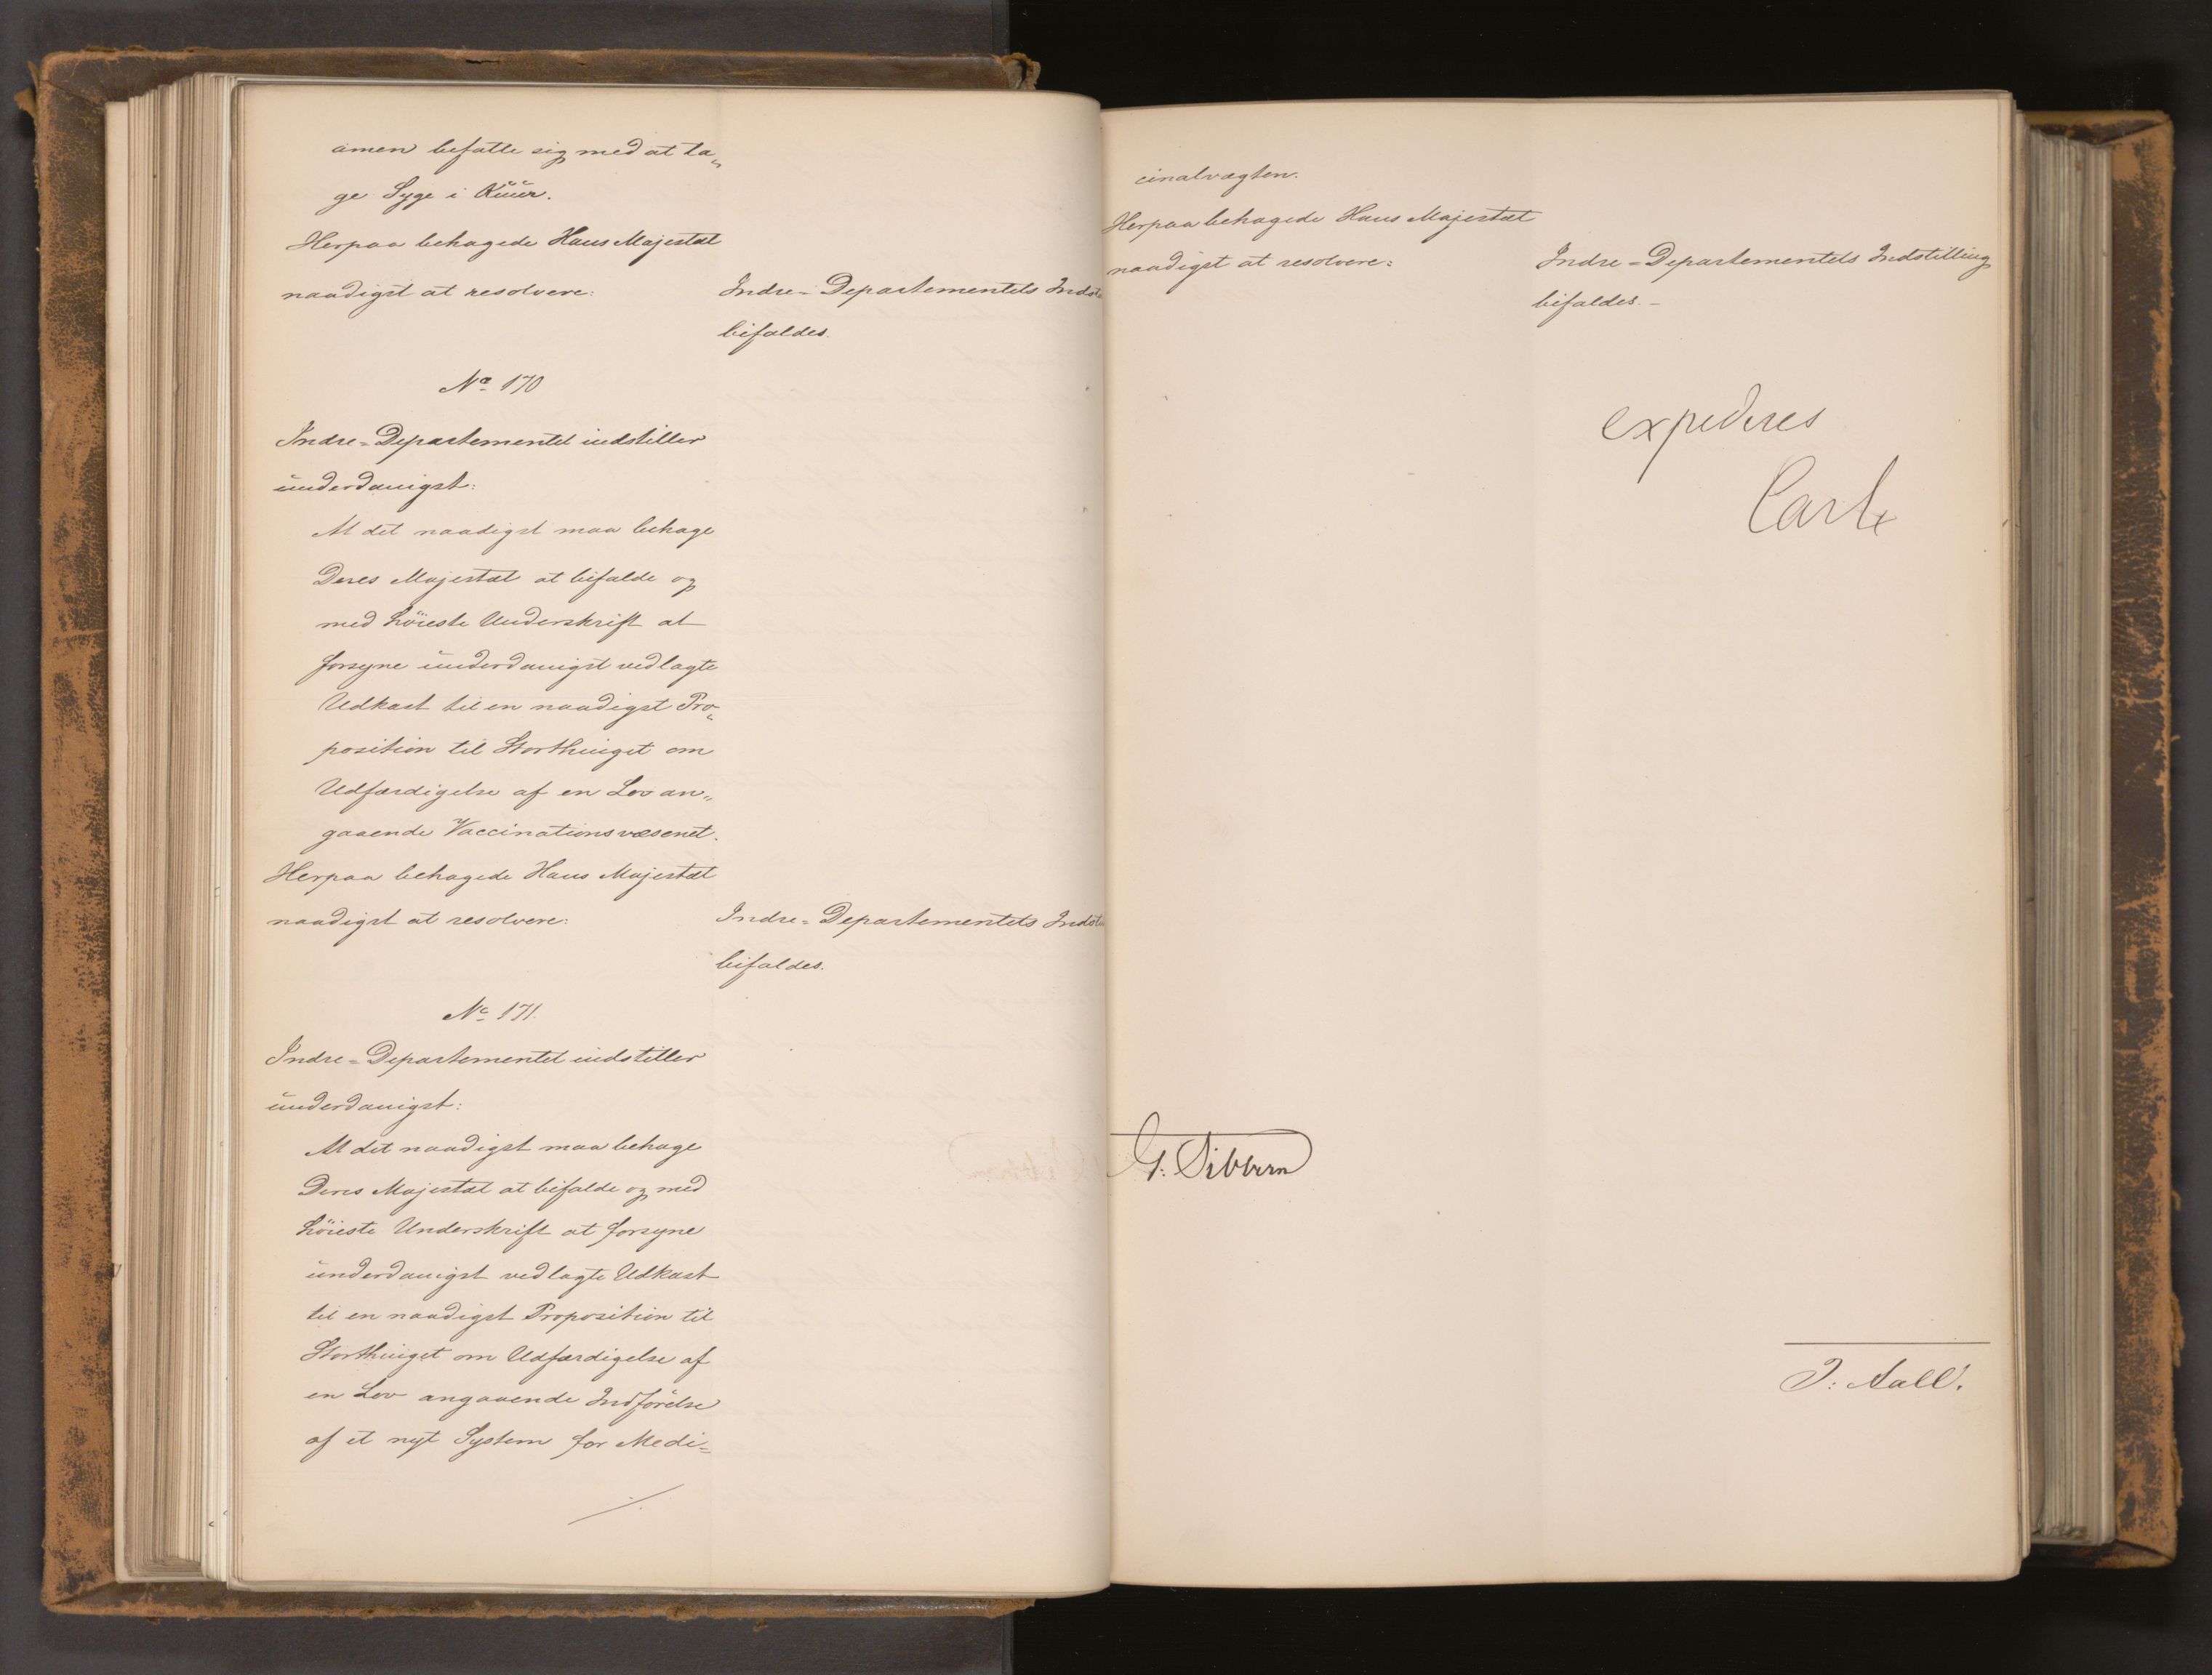 amen befatte sig med at ta„
ge Syge i Kuur.
Herpaa behagede Hans Majestæt
naadigst at resolvere:
Indre-Departementets Indsti
bifaldes.
No 170
Indre-Departementet indstiller
underdanigst:
At det naadigst maa behage
Deres Majestæt at bifalde og
med höieste Underskrift at
forsyne underdanigst vedlagte
Udkast til en naadigst Pro„
position til Storthinget om
Udfærdigelse af en Lov an„
gaaende Vaccinationsvæsenet.
Herpaa behagede Hans Majestæt
naadigst at resolvere:
Indre-Departementets Indsti
bifaldes.
No 171.
Indre-Departementet indstiller
underdanigst:
At det naadigst maa behage
Deres Majestæt at bifalde og med
höieste Underskrift at forsyne
underdanigst vedlagte Udkast
til en naadigst Proposition til
Storthinget om Udfærdigelse af
en Lov angaaende Indförelse
af et nyt System for Medi=
cinalvægten.
Herpaa behagede Hans Majestæt
naadigst at resolvere:
Indre-Departementets Indstilling
bifaldes. –
expederes
Carl
G. Sibbern
J: Aall.